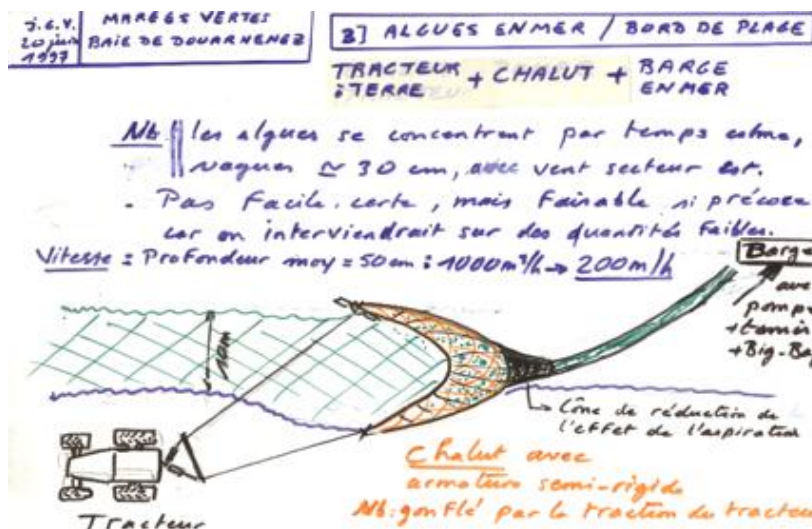 J.G.Y.
20 juin
1997
MAREES VERTES
BAIE DE DOUARNENEZ
3] ALGUES EN MER / BORD DE PLAGE
TRACTEUR + CHALUT + BARGE
à TERRE EN MER
Nb les algues se concentrent par temps calme,
vagues ≃ 30 cm, avec vent secteur est.
- Pas Facile, certe, mais Faisable si précoce
car on interviendrait sur des quantités faibles.
Vitesse = Profondeur moy = 50 cm : 1000 m³/h → 200 m/h
Barge
avec
pompe
+ tamis
+ Big-Bag
10m
Cône de réduction de
l'effet de l'aspiration
Chalut avec
armature semi-rigide
Nb: gonflé par la traction du tracteur
Tracteur